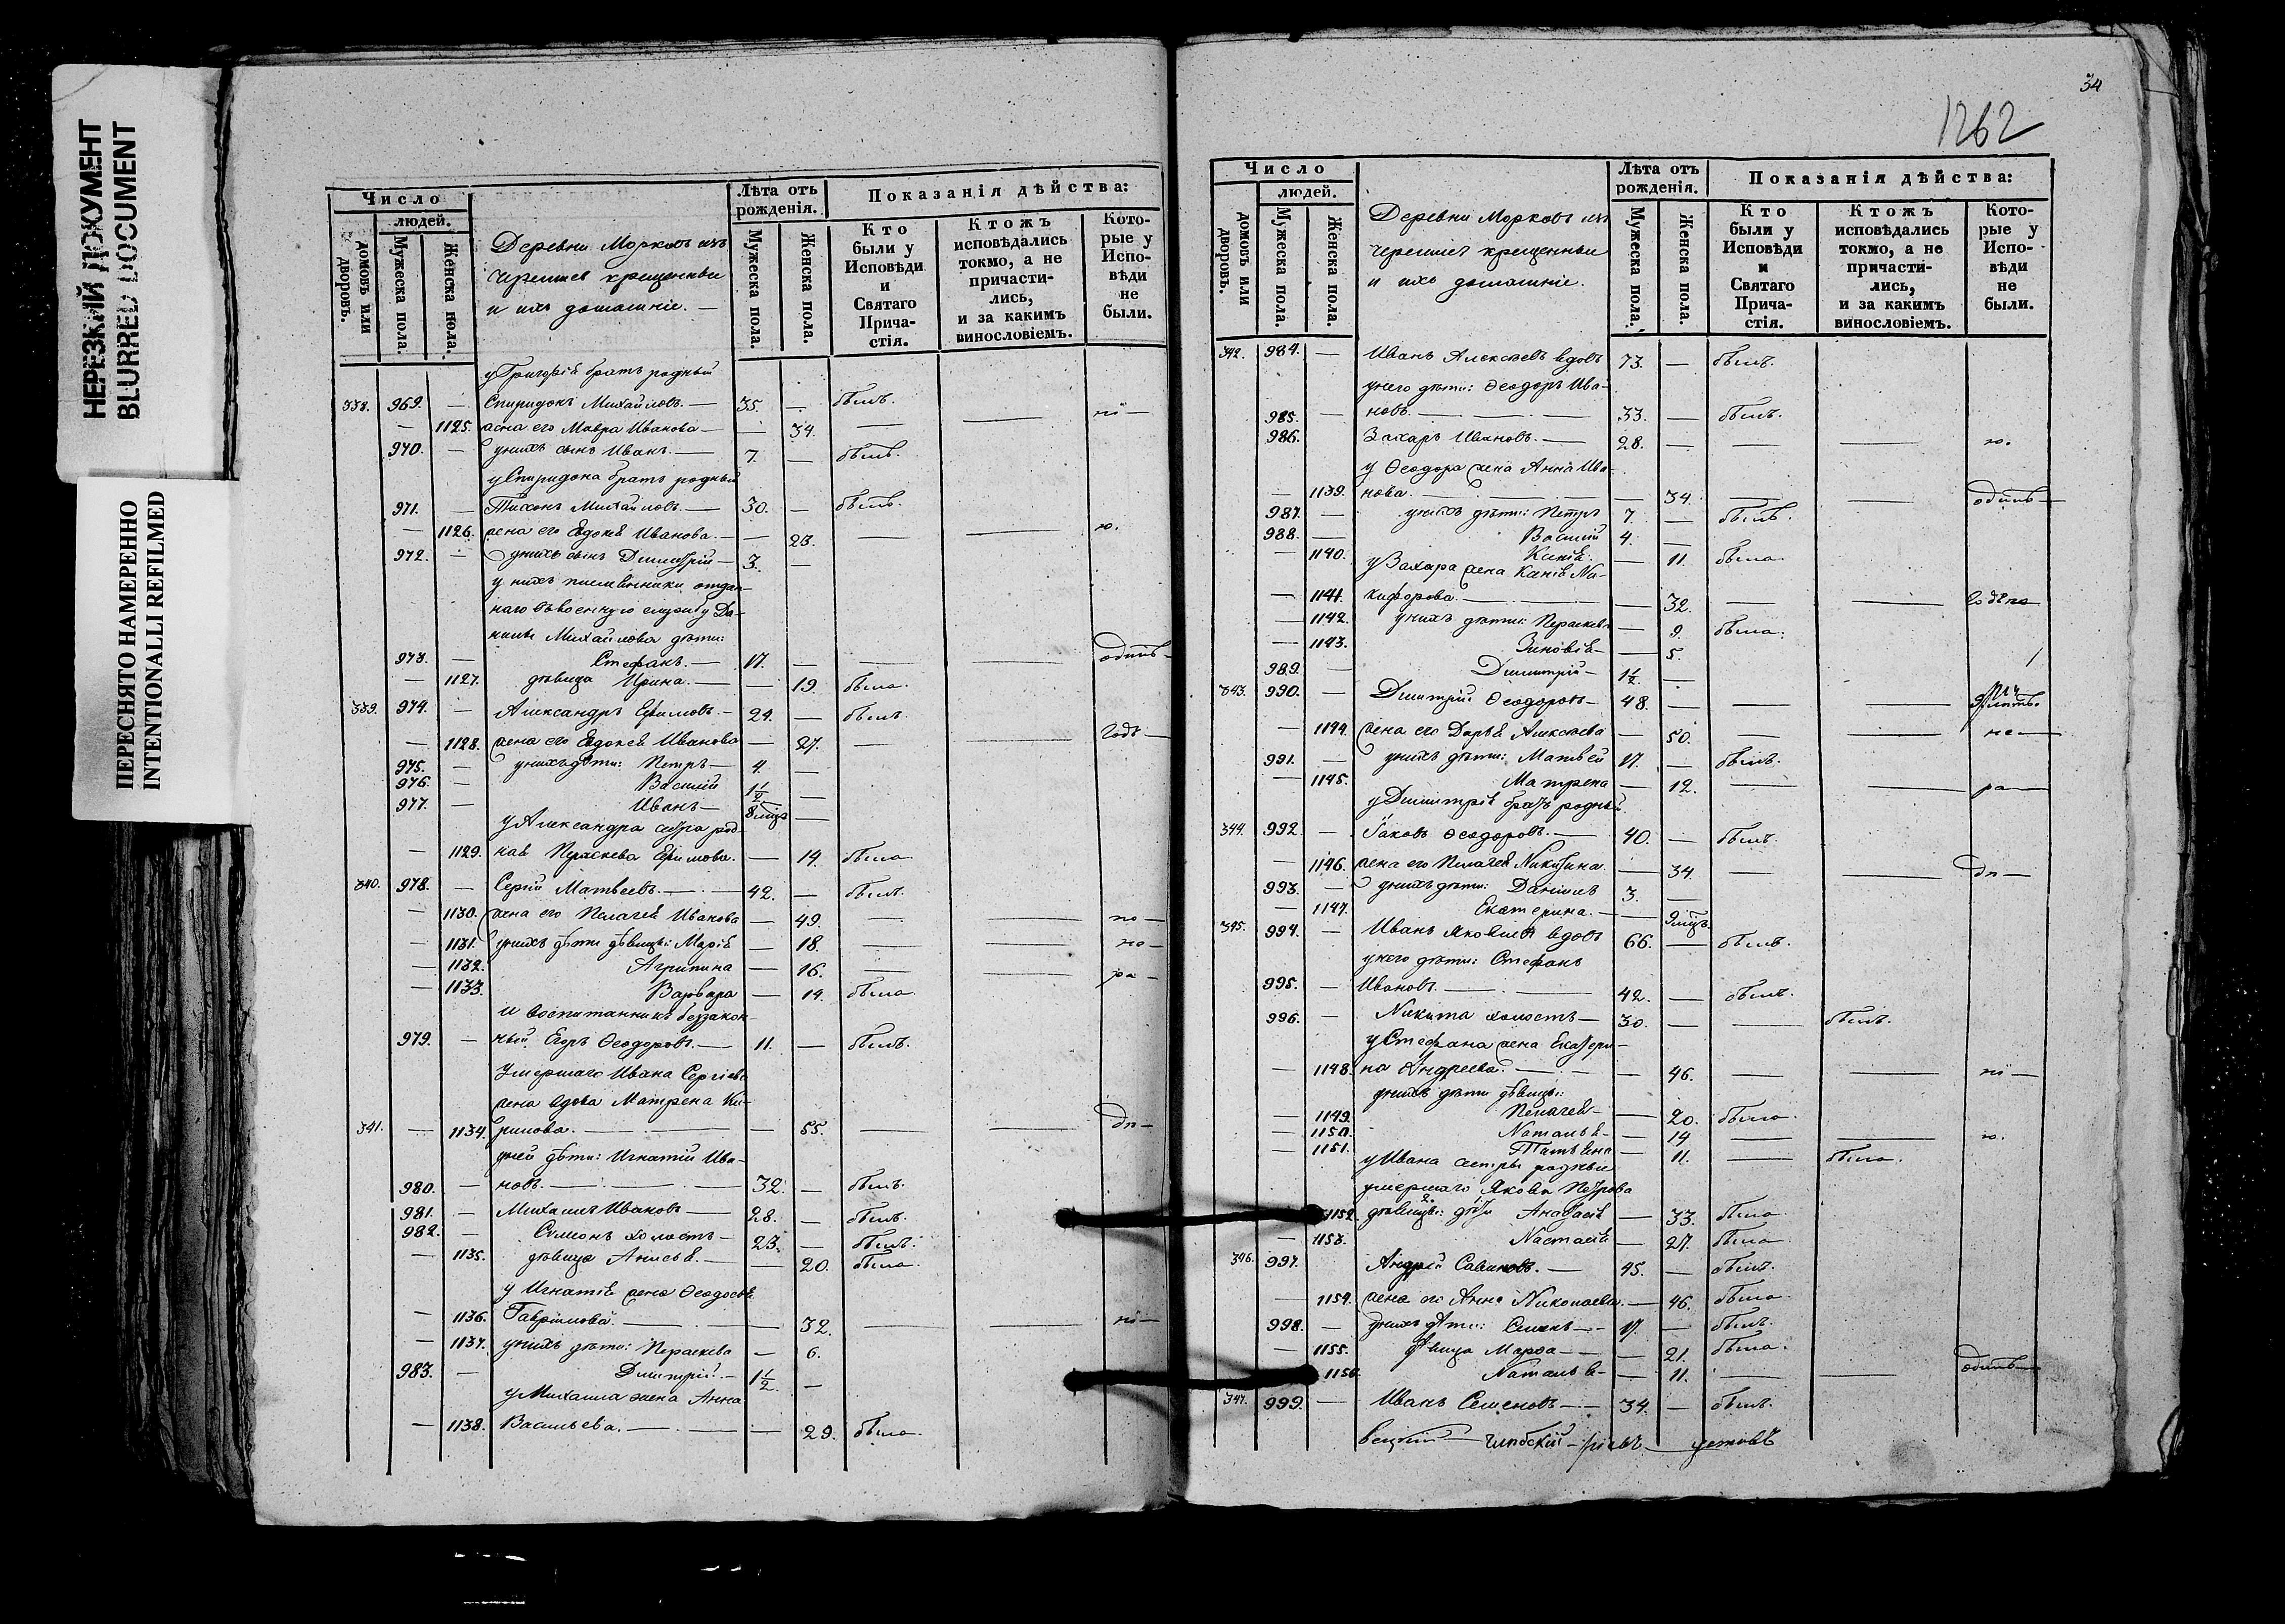 НЕРЕЗКИЙ ДОКУМЕНТ
BLURRED DOCUMENT
ПЕРЕСНЯТО НАМЕРЕННО
INTENTIONALLI REFILMED
Число
людей.
домовъ или дворовъ.
Мужеска пола.
Женска пола.
Деревни Морковъ изъ
Черемисъ крещенныи
и ихъ домашніе. —
Лѣта отъ рожденія.
Мужеска пола.
Женска пола.
Показанія дѣйства:
Кто были у Исповѣди и Святаго Прича-стія.
Ктожъ исповѣдались токмо, а не причасти-лись, и за какимъ винословіемъ.
Кото-рые у Испо-вѣди не были.
у Григорія братъ родный
338. 969. — Спиридонъ Михайловъ. — 35. — былъ.
— 1125. жена его Мавра Иванова — — 34. — —
970. — у нихъ сынъ Иванъ. — 7. — былъ.
у Спиридона братъ родный
971. — Тихонъ Михайловъ. — 30. — былъ.
— 1126. жена его Евдокія Иванова. — — 28. — — ю.
972. — у нихъ сынъ Димитрій — 3. —
у нихъ племянники отдан-
наго въ военную службу Да-
нилы Михайлова дѣти:
973. — Стефанъ. — 17. — — — одинъ —
— 1127. дѣвица Ирина. — — 19. была.
339. 974. — Александръ Ефимовъ. — 24. — былъ.
— 1128. жена его Евдокія Иванова — 27. — — годъ —
975. — у нихъ дѣти: Петръ — 4. —
976. — Василій 1½ —
977. — Иванъ — 8 мцъ —
у Александра сестра род-
— 1129. ная Параскева Ефимова. — 14. была.
340. 978. — Сергій Матвеевъ. — 42. — былъ.
— 1130. жена его Пелагея Иванова — 49. — — по —
— 1131. у нихъ дѣти дѣвицы: Марія — 18. — — но —
— 1132. Агрипина — 16. — — ра —
— 1133. Варвара — 14. была
и воспитанникъ беззакон-
979. — ный Егоръ Ѳеодоровъ. — 11. — былъ.
Умершаго Ивана Сергіева
жена вдова Матрена Ки-
341. — 1134. рилова. — — 55. — — дп —
у ней дѣти: Игнатій Ива-
980. — новъ. — 32. — былъ.
981. — Михаилъ Ивановъ — 28. — былъ.
982. — Симеонъ холостъ — 23. — былъ.
— 1135. дѣвица Анисья. — — 20. была.
у Игнатія жена Ѳеодосья
— 1136. Гавріилова. — — 32. — — ні —
— 1137. у нихъ дѣти: Параскева — 6.
983. — Димитрій. — 1½ —
у Михаила жена Анна
— 1138. Васильева. — — 29. была.
34
1262
Число
людей.
домовъ или дворовъ.
Мужеска пола.
Женска пола.
Деревни Морковъ изъ
черемисъ крещенныи
и ихъ домашніе.
Лѣта отъ рожденія.
Мужеска пола.
Женска пола.
Показанія дѣйства:
Кто были у Исповѣди и Святаго Прича-стія.
Ктожъ исповѣдались токмо, а не причасти-лись, и за какимъ винословіемъ.
Кото-рые у Испо-вѣди не были.
342. 984. — Иванъ Алексѣевъ вдовъ 73. — былъ.
у него дѣти: Ѳеодоръ Ива-
985. — новъ. — 33. — былъ.
986. — Захаръ Ивановъ. — 28. — — — ю.
у Ѳеодора жена Анна Ива-
— 1139. нова. — — 34. — — одинъ —
987. — у нихъ дѣти: Петръ 7. — былъ.
988. — Василій 4. —
— 1140. Ксенія. — 11. была.
у Захара жена Ксенія Ни-
— 1141. кифорова. — — 32. — —
— 1142. у нихъ дѣти: Параскева — 9. была.
— 1143. Зиновія — 5.
989. — Димитрій — 1½ —
343. 990. — Димитрій Ѳеодоровъ — 48. — — —
— 1144. жена его Дарья Алексѣева 50. — — не —
991. — у нихъ дѣти: Матвей 17. — былъ.
— 1145. Матрена — 12. — — ра —
у Димитрія братъ родный
344. 992. — Іаковъ Ѳеодоровъ. — 40. — былъ.
— 1146. жена его Пелагея Никитина. — 34. — — дп —
993. — у нихъ дѣти: Даніилъ 3. —
— 1147. Екатерина. — — 9 мцъ.
345. 994. — Иванъ Яковлевъ вдовъ 66. — былъ.
у него дѣти: Стефанъ
995. — Ивановъ. — 42. — былъ.
996. — Никита холостъ — 30. — — былъ.
у Стефана жена Екатери-
— 1148. на Андреева. — — 46. — — ні —
у нихъ дѣти дѣвицы:
— 1149. Пелагея — — 20. была.
— 1150. Наталья — — 14 — — ю.
— 1151. Татьяна — 11. — была.
у Ивана сестры родныи
умершаго Якова Петрова
1152. дѣвицы: дѣти Анастасія — 33. была
— 1153. Настасія — 27. была
346. 997. Андрей Савиновъ. — 45. — былъ.
— 1154. жена его Анна Николаева. — 46. была.
998. — у нихъ дѣти: Семенъ — 17. — былъ.
— 1155. дѣвица Марѳа — — 21. была.
— 1156. Наталья — — 11. — — одинъ —
347. 999. — Иванъ Семеновъ — 34. — былъ.